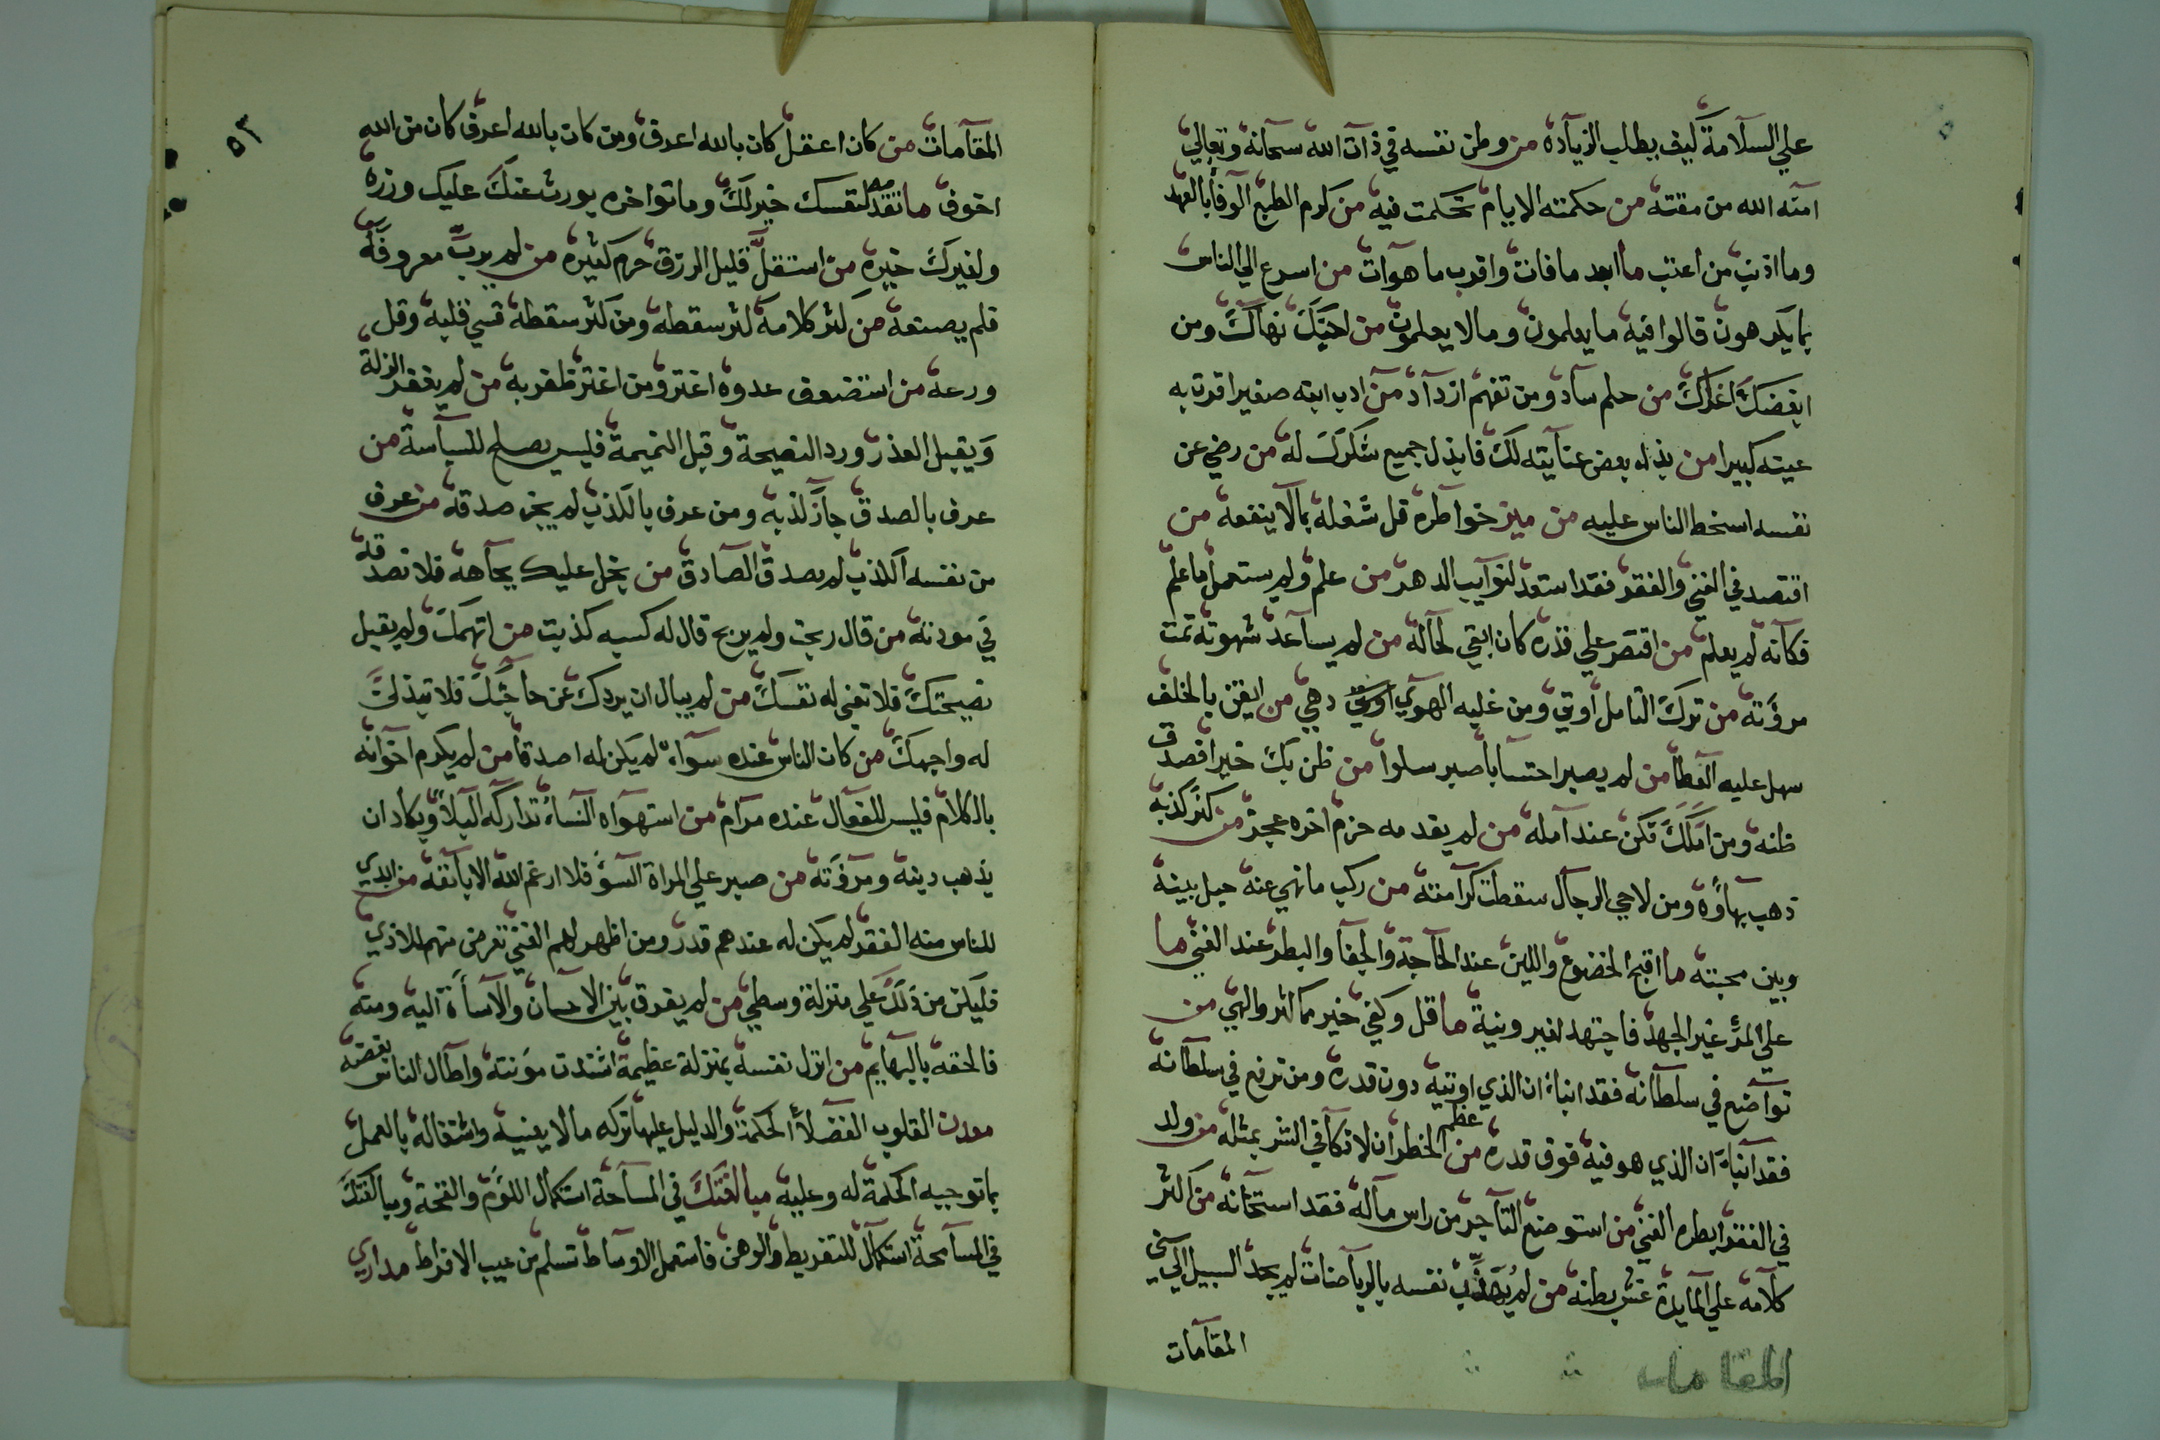 علي السلامة كيف بطلب الزيادة من وطن نفسه في ذات الله سبحانه وتعالي
امنه الله من مقته من حكمته الايام تحكمت فيه من كرم الطبع الوفا بالعهد
وما اذنب من اعتب ما ابعد ما فات واقرب ما هوات من اسرع الي الناس
بما يكرهون قالوا فيه ما يعلمون ومالا يعلمون من احبك نهاك ومن
ابغضك اغراك من حلم ساد ومن تفهم ازداد من ادب ابنه صغيرا قرت به
عينه كبيرا من بذل بعض عنايته لك فابذل جميع شكرك له من رضي عن
نفسه اسخط الناس عليه من ميز خواطره قل شغله بمالا ينفعه من
اقتصد في الغني والفقر فقد استعد لنوايب الدهر من علم ولم يستعمل ما علم
فكانه لم يعلم من اقتصر علي قدره كان ابقي لحاله من لم يساعد شهوته تمت
مروته من ترك التامل اوتي ومن غلبه الهوي دهي من ايقن بالخلف
سهل عليه العطا من لم يصبر احتسابا صبر سلوا من ظن بك خيرا فصدق
ظنه ومن املك فكن عند امله من لم يقدمه حزم اخره عجز من كثر كذبه
ذهب بهاؤه ومن لاحي الرجال سقطت كرامته من ركب ما نهي عنه حيل بينه
وبين محبته ما اقبح الخضوع واللين عند الحاجة والجفا والبطر عند الغني ما
علي المرء غير الجهد فاجتهد لغير ونية ما قل وكفي خير مما كثر والهي من
تواضع في سلطانه فقد انباء ان الذي اوتيه دون قدره ومن ترفع في سلطانه
فقد انباء ان الذي هو فيه فوق قدره من عظم الخطر ان لا تكافي الشر بمثله من ولد
في الفقر ابطره الغني من استوضع التاجر من راس ماله فقد استخانه من اكثر
كلامه علي المايدة غش بطنه من لم يهذب نفسه بالرياضات لم يجد السبيل الي سني
المقامات
المقامات
٥٣
المقامات من كان اعقل كان بالله اعرف ومن كان بالله اعرف كان من الله
اخوف ما تقدمه لنفسك خير لك وما تواخره يورث عنك عليك وزره
ولغيرك خيره من استقل قليل الرزق حرم كثيره من لم يرب معروفه
فلم يصنعه من كثر كلامه كثر سقطه ومن كثر سقطه قسي قلبه وقل
ورعه من استضعف عدوه اغتر ومن اغتر ظفر به من لم يغفر الزلة
ويقبل العذر ورد النصيحة وقبل النميمة فليس يصلح للسياسة من
عرف بالصدق جاز كذبه ومن عرف بالكذب لم يجز صدقه من عرف
من نفسه الكذب لم يصدق الصادق من بخل عليك بجاهه فلا تصدقه
في مودته من قال ربحت ولم يربح قال له كسبه كذبت من اتهمك ولم يقبل
نصيحتك فلا تغني له نفسك من لم يبال ان يردك عن حاجتك فلا تبذلن
له واجهك من كان الناس عنده سواء لم يكن له اصدقا من لم يكرم اخوانه
بالكلام فليس للفعال عنده مرام من استهواه النساء تداركه البلا ويكاد ان
يذهب دينه ومروته من صبر علي المراة السؤ فلا ارغم الله الا بانفه من ابدي
للناس منه الفقر لم يكن له عندهم قدر ومن اظهر لهم الغني تعرض منهم للاذي
فليكن من ذلك علي منزلة وسطي من لم يفرق بين الاحسان والاساة اليه ومنه
فالحقه بالبهايم من انزل نفسه بمنزلة عظيمة اشتدت مؤنته واطال الناس بغضه
معدن القلوب الفضلا الحكمة والدليل عليها تركه مالا يعنيه واشتغاله بالعمل
بما توجبه الحكمة له وعليه مبالغتك في المساحة استكمال اللؤم والقحة ومبالغتك
في المسامحة استكمال للتفريط والوهن فاستعمل الاوساط تسلم من عيب الافراط مداري